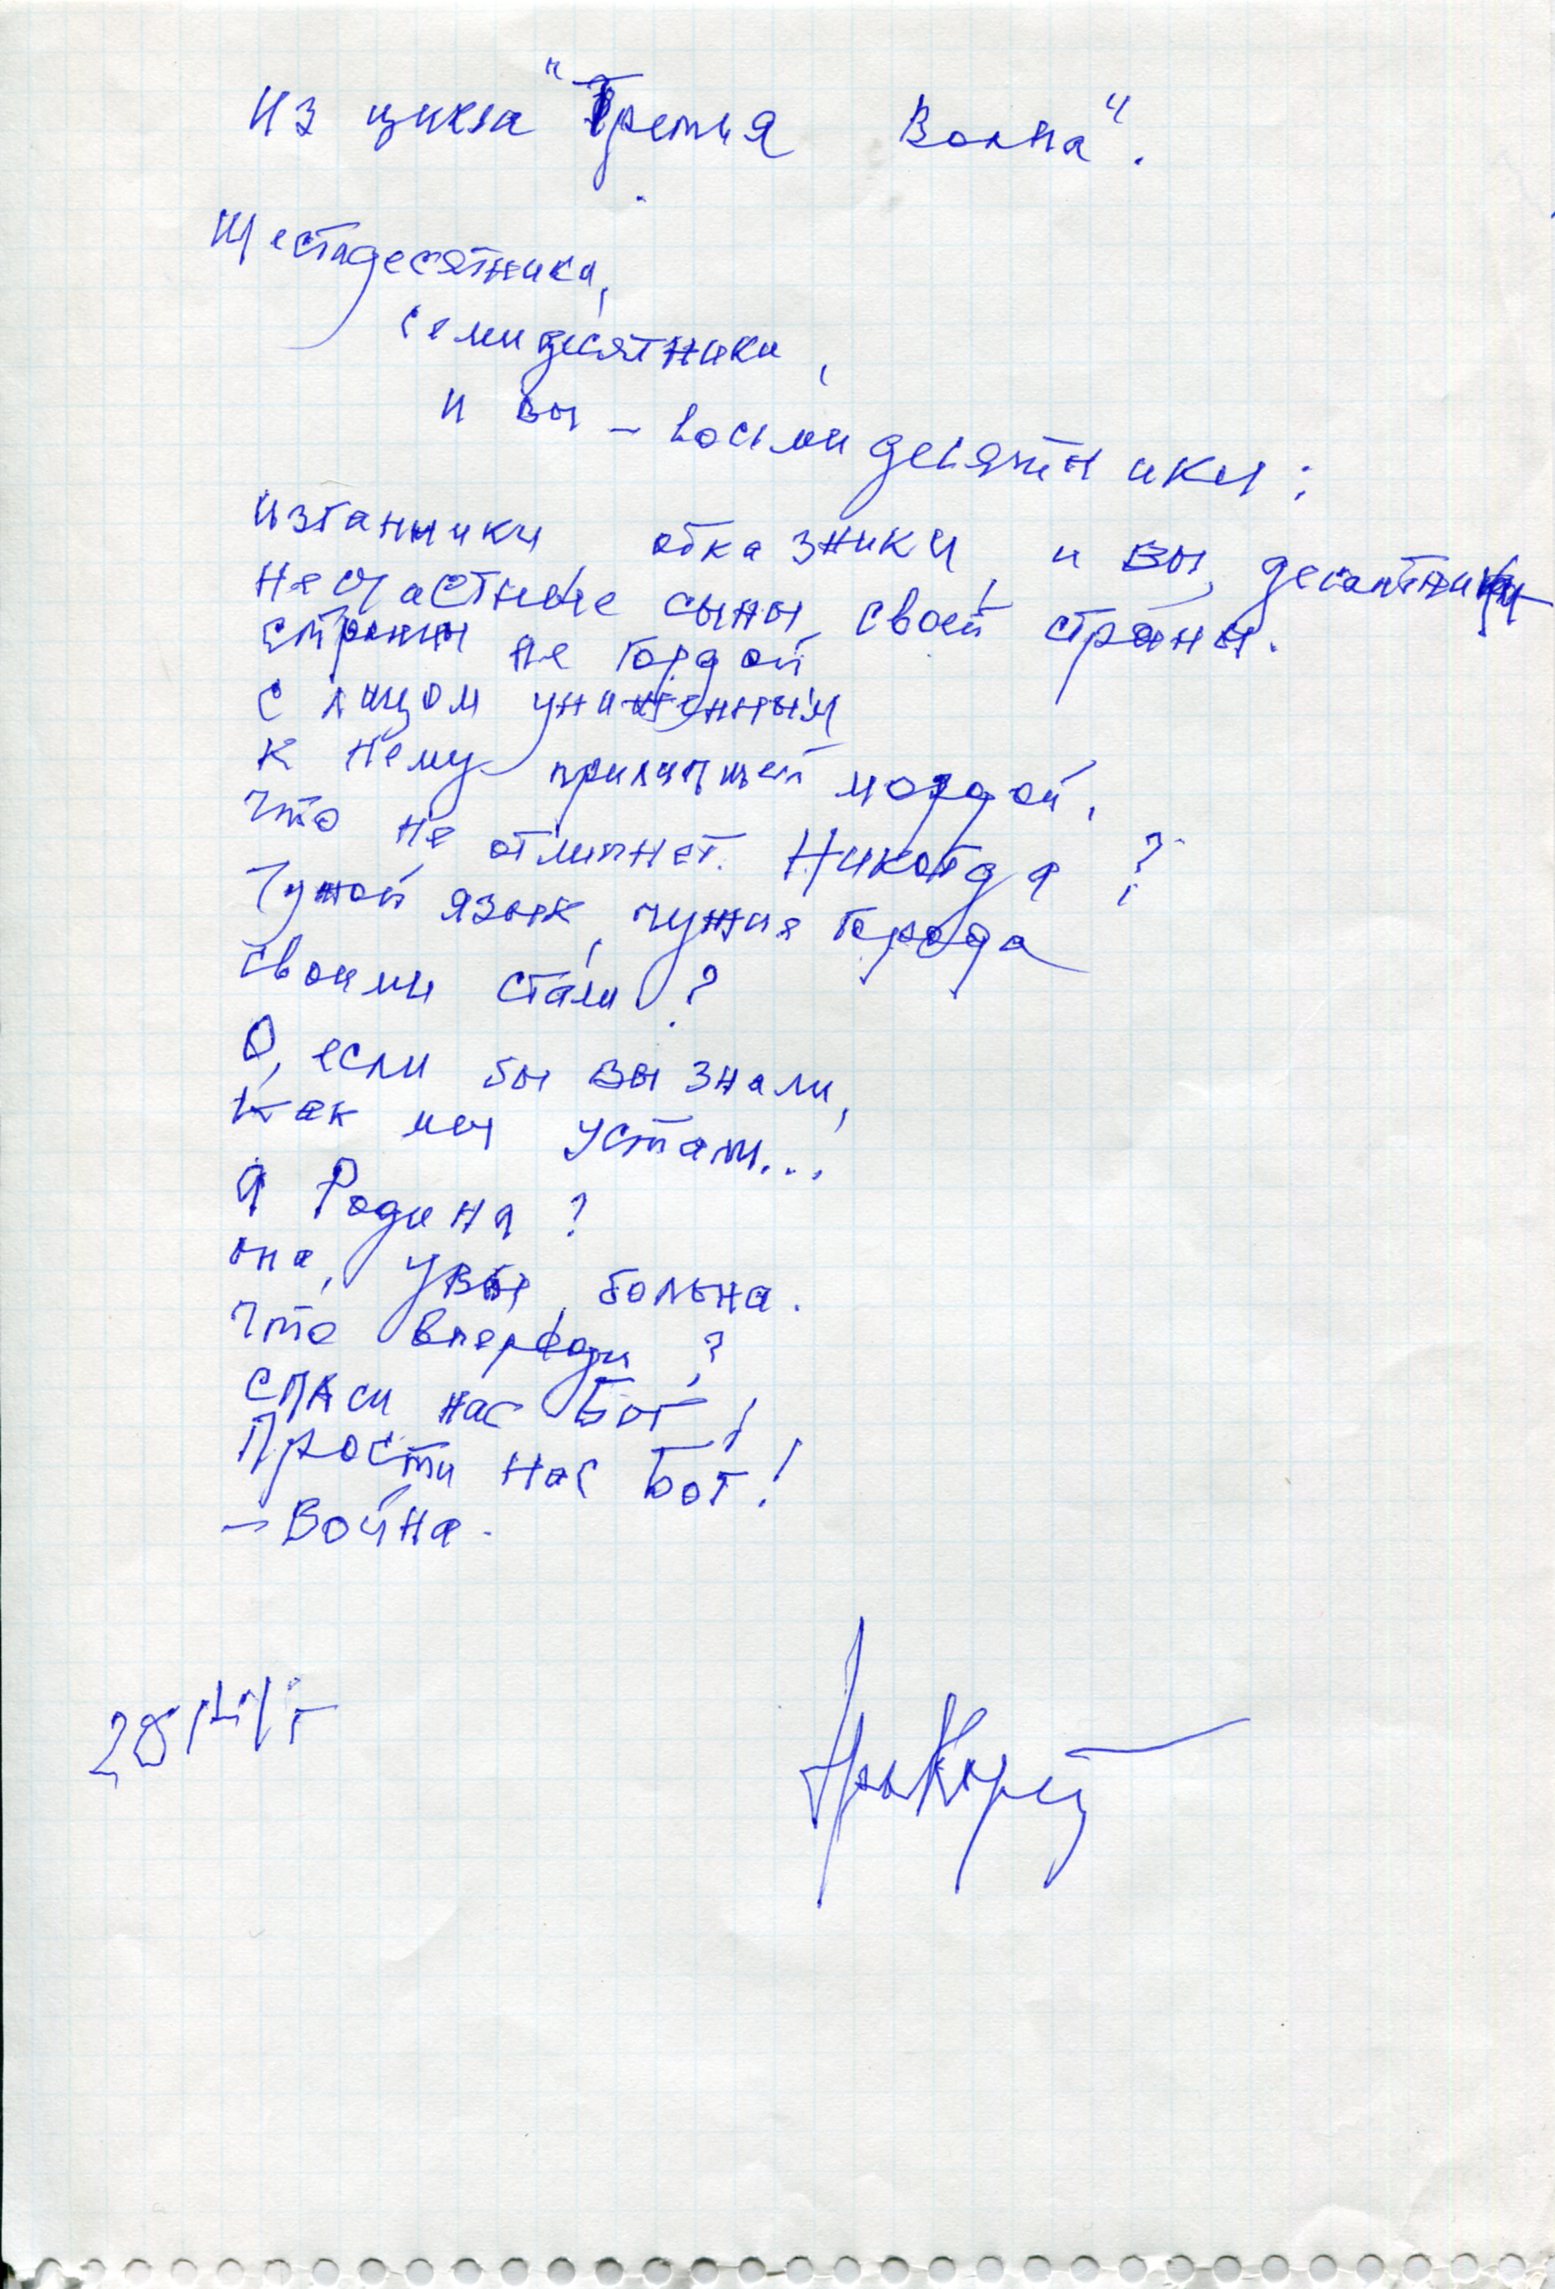 Из цикла "Третья Волна".
Шестидесятники,
семидесятники,
и вы – восьмидесятники:
изгнанники, отказники, и вы, десантники
Несчастные сыны своей страны.
Страны не гордой
с лицом униженным
к нему прилипшей мордой,
Что не отлипнет. Никогда?
Чужой язык, чужие города
своими стали?
О, если бы вы знали,
Как мы устали...
А Родина?
она, увы, больна.
Что впереди?
Спаси нас Бог!
Прости нас Бог!
– Война.